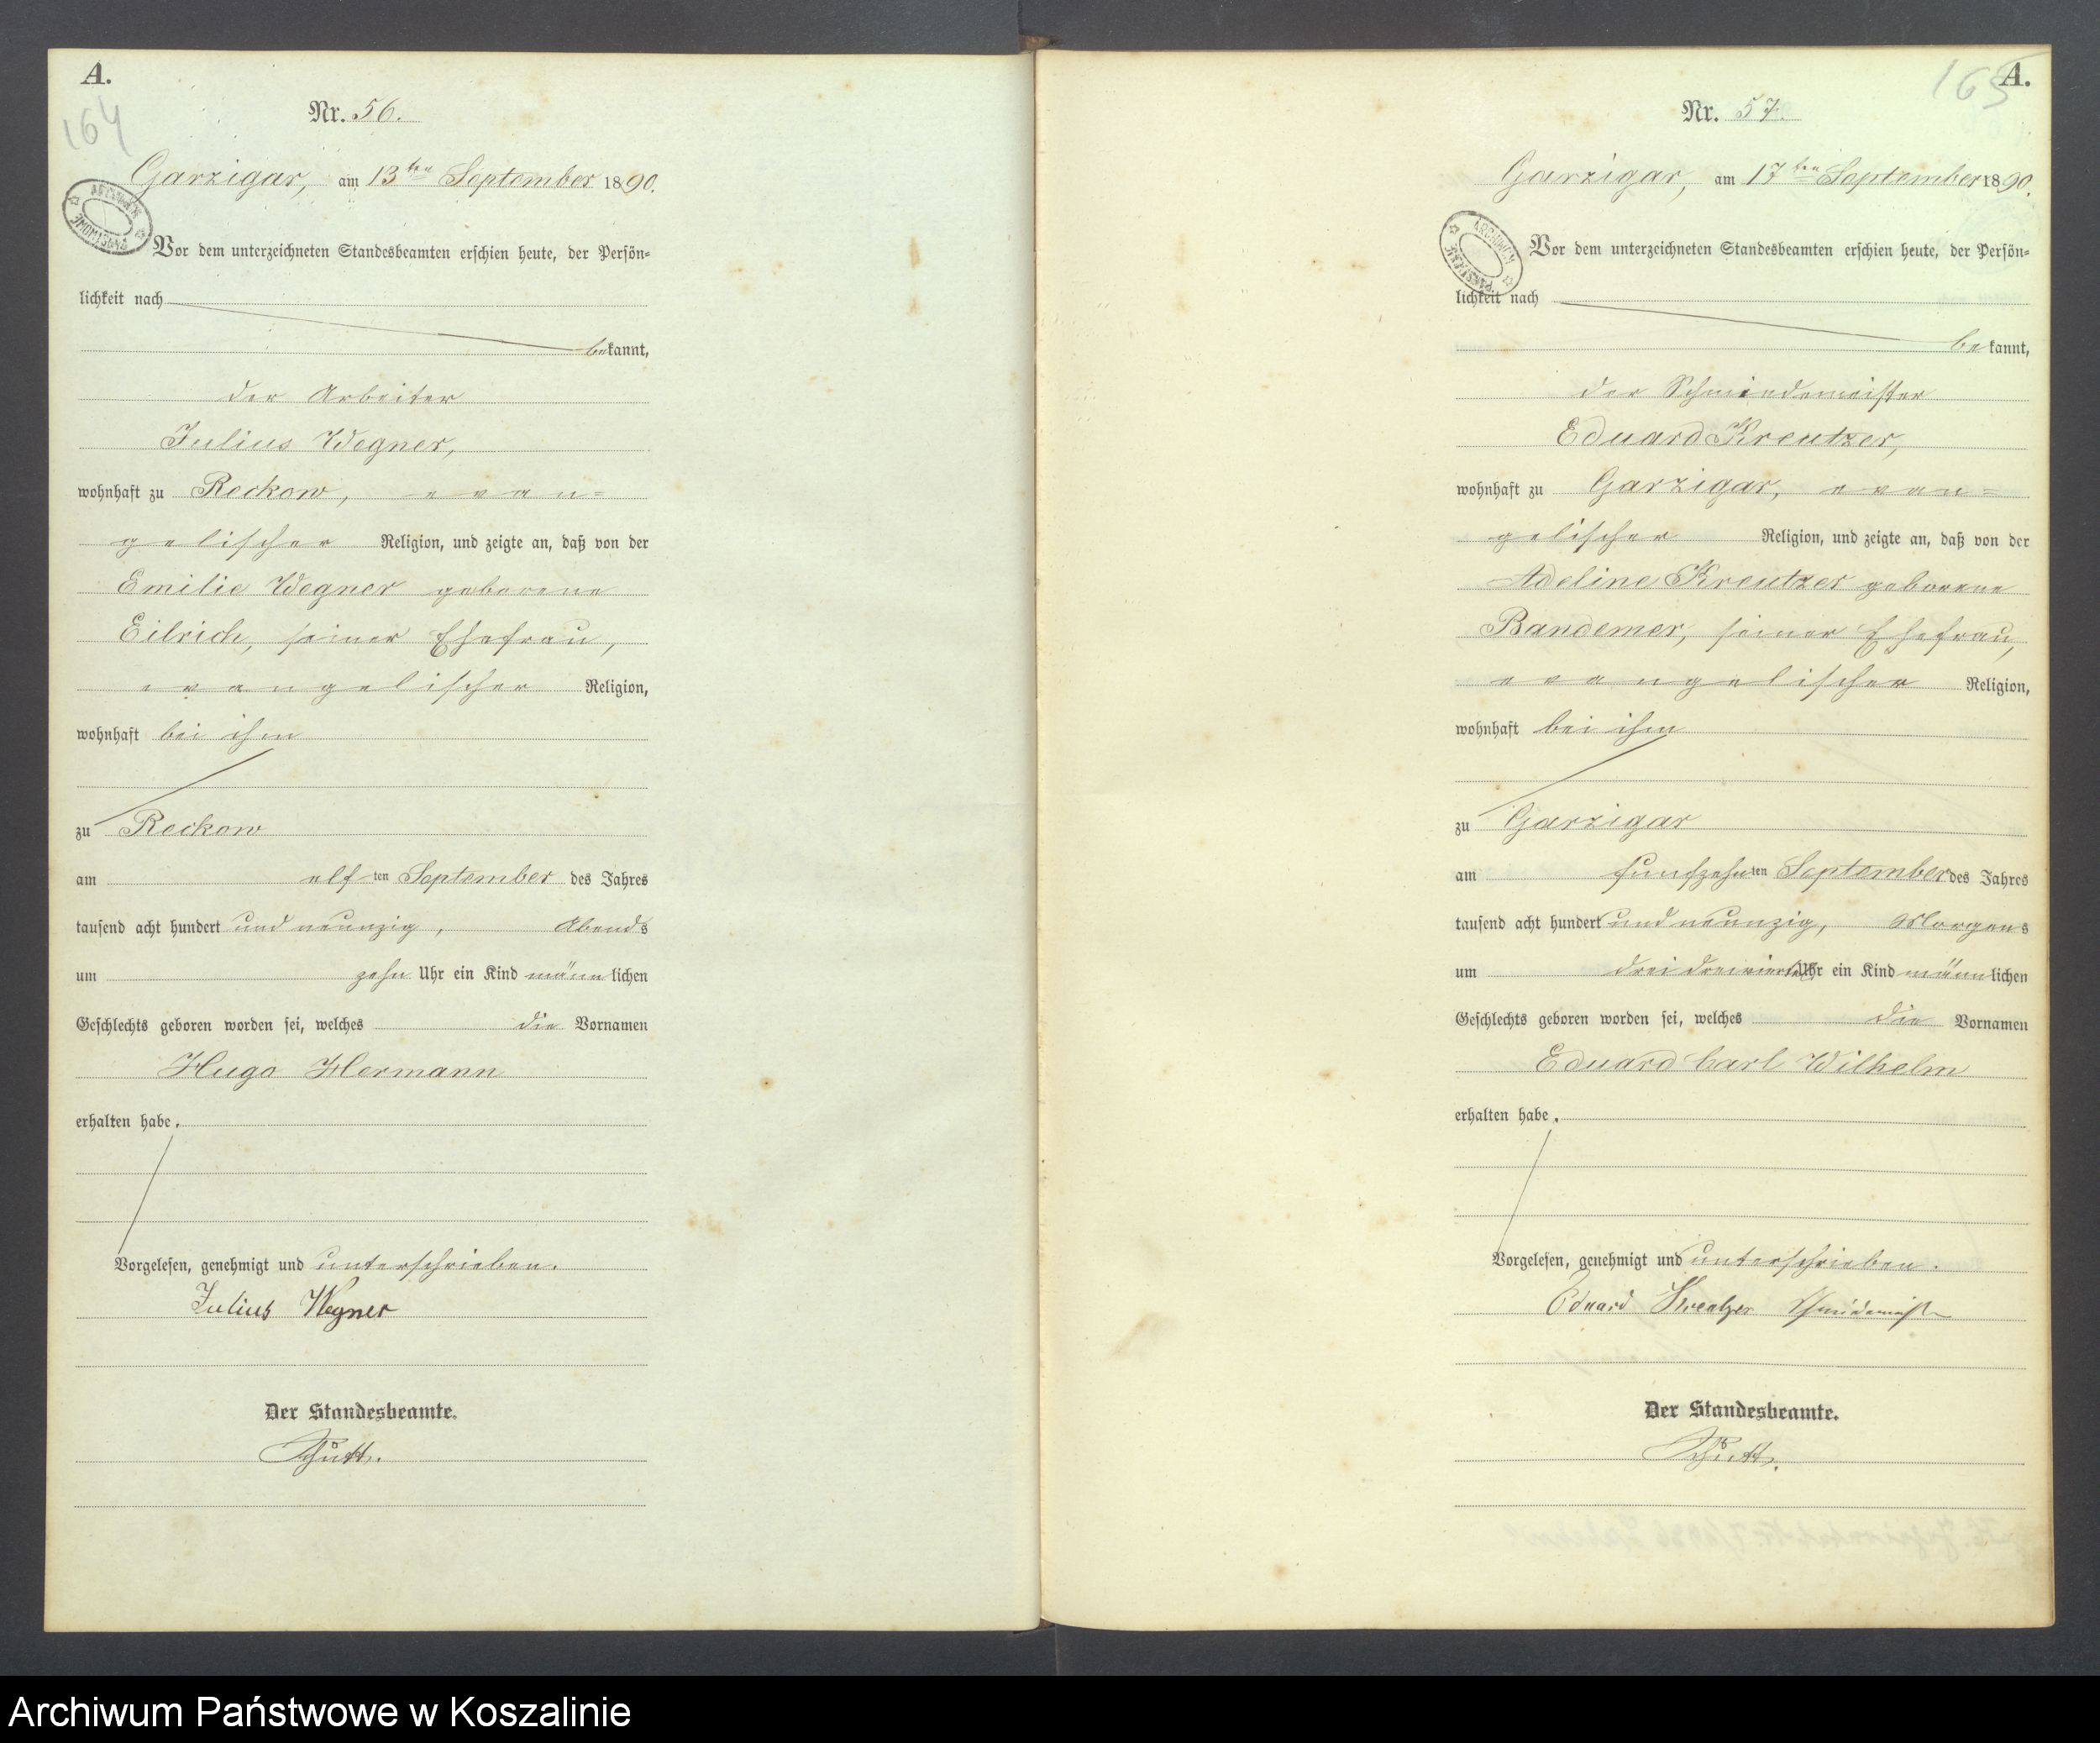 A.
164
Nr. 56.
Garzigar, am 13ten September 1890.
ARCHIWUM PAŃSTWOWE
Vor dem unterzeichneten Standesbeamten erschien heute, der Persön-
lichkeit nach
bekannt,
der Arbeiter
Julius Wegner,
wohnhaft zu Reckow, evan-
gelischer Religion, und zeigte an, daß von der
Emilie Wegner geborene
Eilrich, seiner Ehefrau,
evangelischer Religion,
wohnhaft bei ihm
zu Reckow
am elften September des Jahres
tausend acht hundert und neunzig, Abends
um zehn Uhr ein Kind männlichen
Geschlechts geboren worden sei, welches die Vornamen
Hugo Hermann
erhalten habe.
Vorgelesen, genehmigt und unterschrieben.
Julius Wegner
Der Standesbeamte.
A.
165
Nr. 57.
Garzigar, am 17ten September 1890.
ARCHIWUM PAŃSTWOWE
Vor dem unterzeichneten Standesbeamten erschien heute, der Persön-
lichkeit nach
bekannt,
der Schmiedemeister
Eduard Kreutzer,
wohnhaft zu Garzigar, evan-
gelischer Religion, und zeigte an, daß von der
Adeline Kreutzer geborene
Bandemer, seiner Ehefrau,
evangelischer Religion,
wohnhaft bei ihm
zu Garzigar
am fünfzehnten September des Jahres
tausend acht hundert und neunzig, Morgens
um drei dreiviertel Uhr ein Kind männlichen
Geschlechts geboren worden sei, welches die Vornamen
Eduard Carl Wilhelm
erhalten habe.
Vorgelesen, genehmigt und unterschrieben.
Eduard Kreutzer Schmidemeister
Der Standesbeamte.
Archiwum Państwowe w Koszalinie